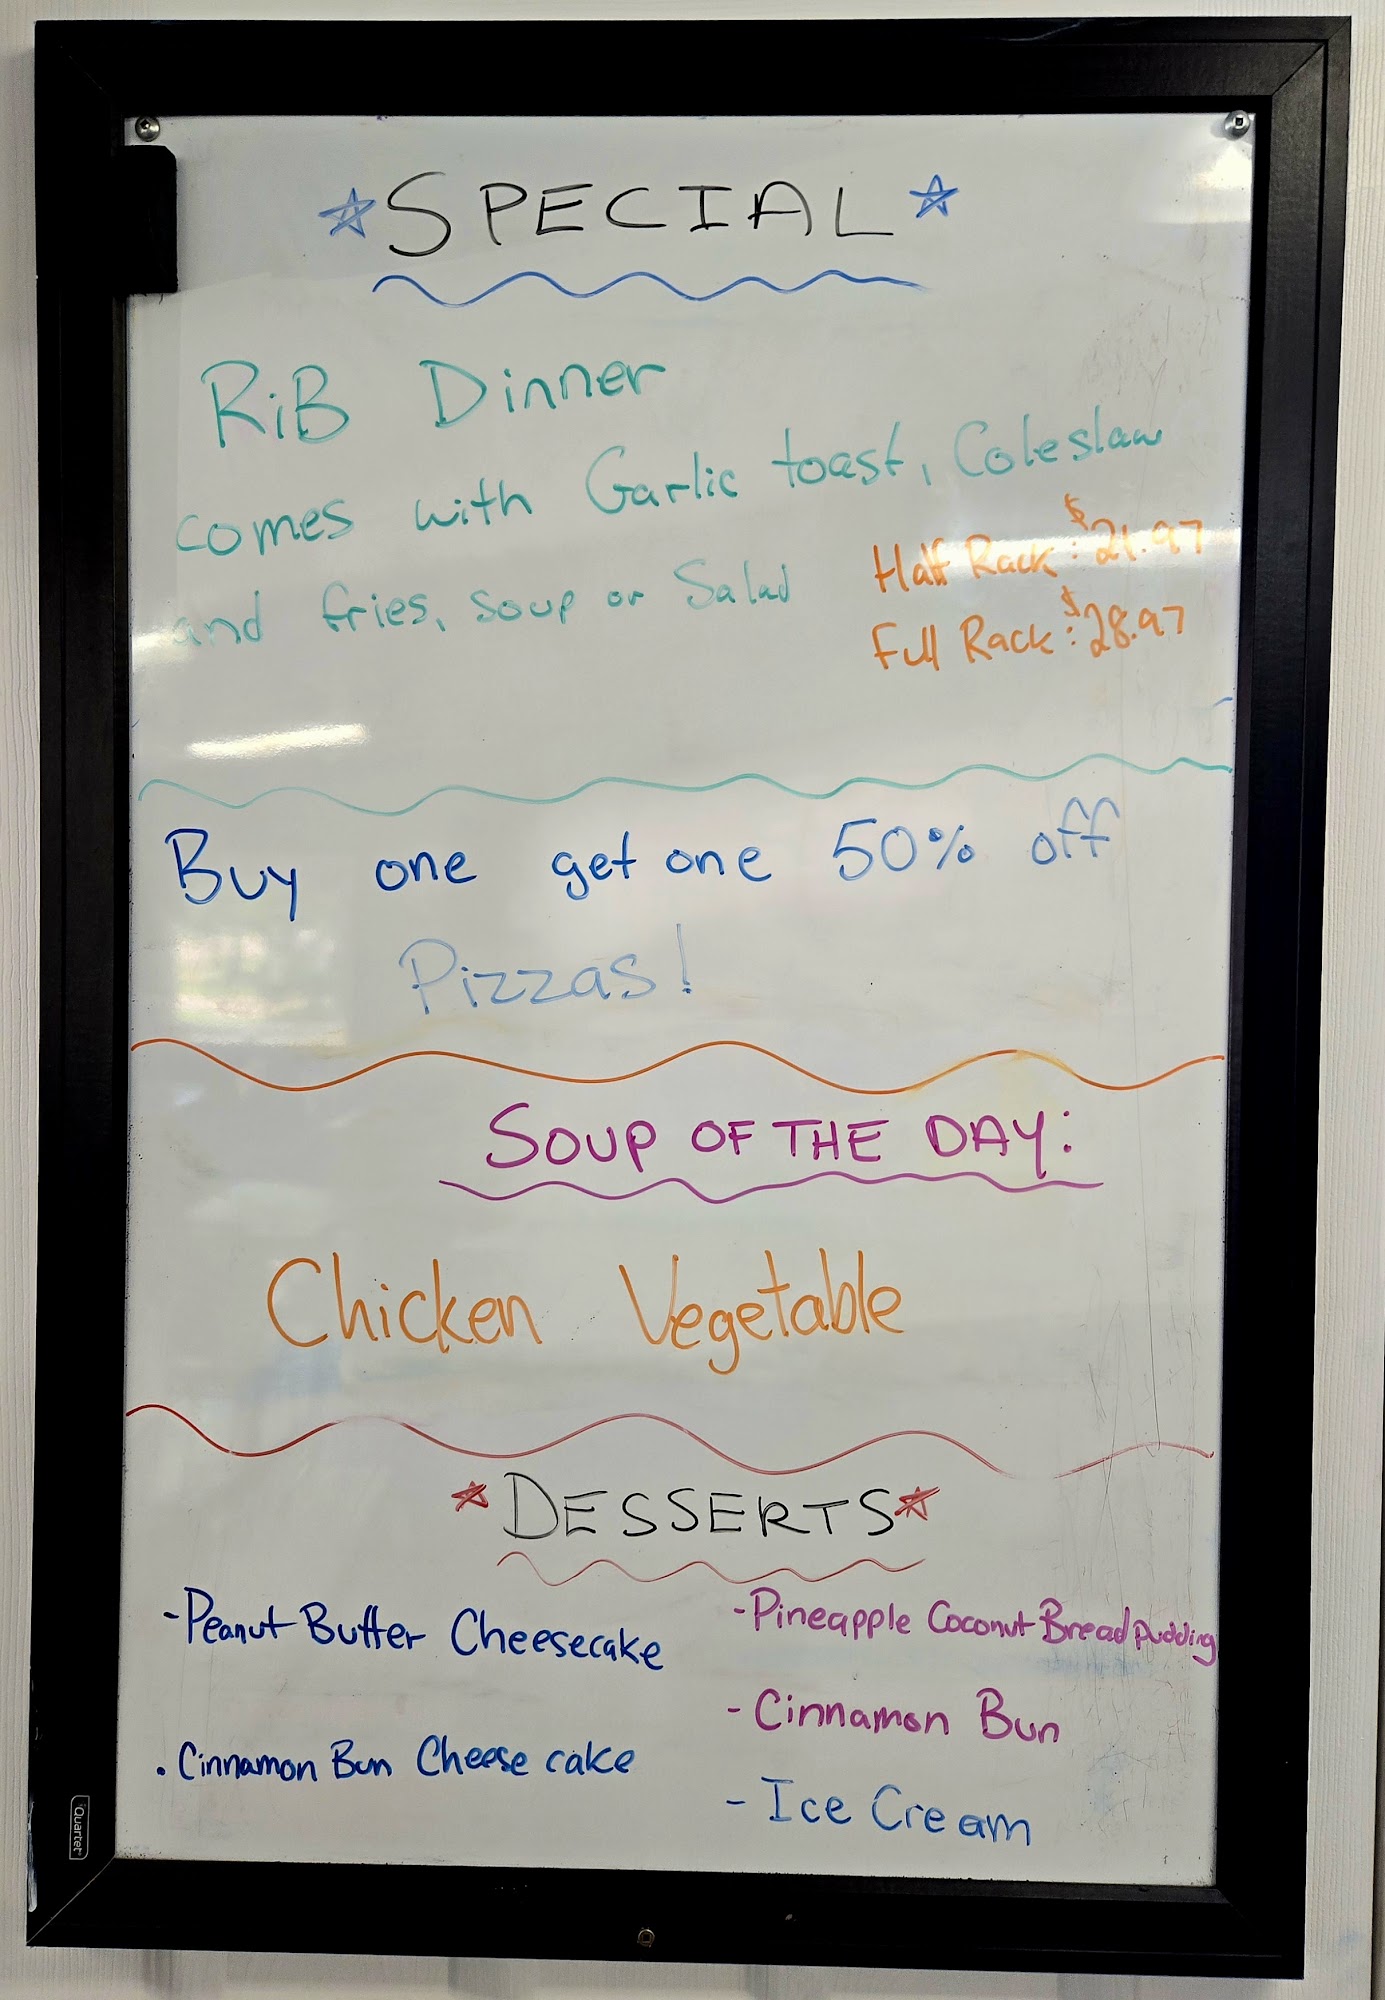 SPECIAL
RiB Dinner
comes with Garlic toast, Coleslaw
and fries, soup or Salad
Half Rack: $21.97
Full Rack: $28.97
Buy one get one 50% off
Pizzas!
SOUP OF THE DAY:
Chicken Vegetable
DESSERTS
-Peanut Butter Cheesecake
. Cinnamon Bun Cheese cake
-Pineapple Coconut Bread Pudding
- Cinnamon Bun
- Ice Cream
Quartet